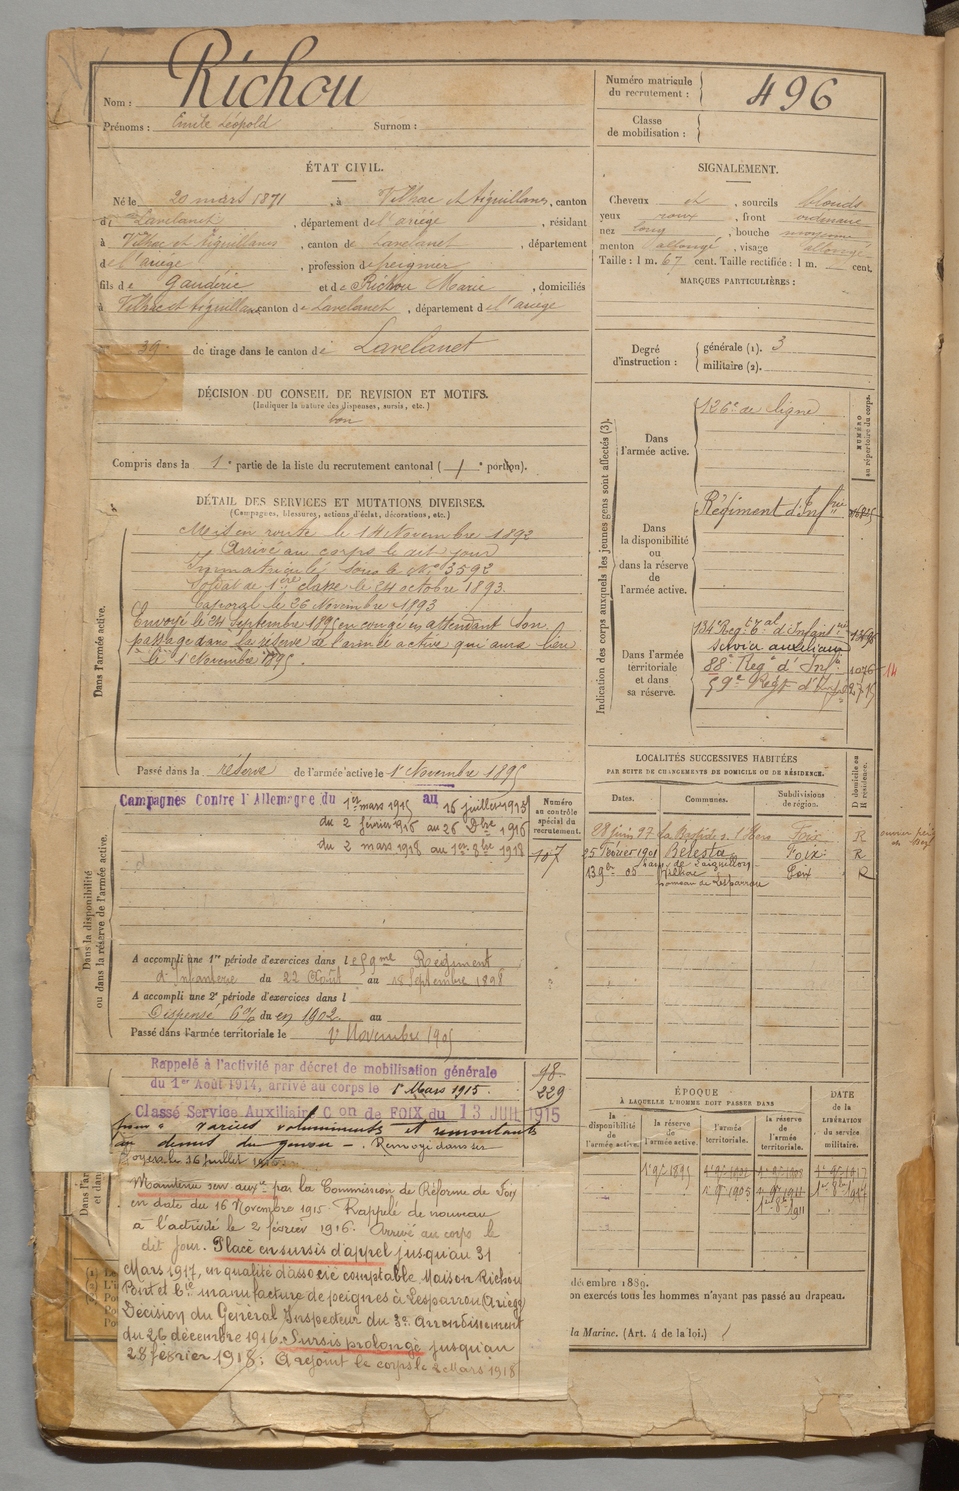 Nom : Richou
Prénoms : Emile Léopold Surnom :
Numéro matricule du recrutement : 496
Classe de mobilisation :
ÉTAT CIVIL.
Né le 20 mars 1871, à Vilhac et Aiguillanes, canton
de Lavelanet, département de l'ariége, résidant
à Vilhac et Aiguillanes, canton de Lavelanet, département
de l'ariége, profession de peignier
fils de Gaudéric et de Richou Marie, domiciliés
à Vilhac et Aiguillanes canton de Lavelanet, département de l'ariége
39 de tirage dans le canton de Lavelanet
SIGNALEMENT.
Cheveux et, sourcils blonds
yeux roux, front ordinaire
nez long, bouche moyenne
menton allongé, visage allongé
Taille : 1 m. 67 cent. Taille rectifiée : 1 m. cent.
MARQUES PARTICULIÈRES :
Degré d'instruction : générale (1). 3
militaire (2).
DÉCISION DU CONSEIL DE REVISION ET MOTIFS.
(Indiquer la nature des dispenses, sursis, etc.)
bon
Compris dans la 1e partie de la liste du recrutement cantonal ( e portion).
DÉTAIL DES SERVICES ET MUTATIONS DIVERSES.
(Campagnes, blessures, actions d'éclat, décorations, etc.)
Dans l'armée active.
Mis en route le 14 Novembre 1892
Arrivé au corps le dit jour
Immatriculé sous le No 3592
Soldat de 1ère classe le 24 octobre 1893.
Caporal le 26 Novembre 1893
Envoyé le 24 Septembre 1895 en congé en attendant son
passage dans la réserve de l'armée active qui aura lieu
le 1 Novembre 1895.
Passé dans la réserve de l'armée active le 1r Novembre 1895
Indication des corps auxquels les jeunes gens sont affectés (3).
NUMÉRO au répertoire du corps.
Dans l'armée active.
126e de ligne
Dans la disponibilité ou dans la réserve de l'armée active.
Régiment d'Infrie
Dans l'armée territoriale et dans sa réserve.
134 Regt Tal d'Infantrie
service auxiliaire
88e Regt d'Infie 1076 14
59e Regt d'Infie
LOCALITÉS SUCCESSIVES HABITÉES
PAR SUITE DE CHANGEMENTS DE DOMICILE OU DE RÉSIDENCE.
Dates. Communes. Subdivisions de région. D domicile ou R résidence.
28 juin 97 La Bastide s. l'Hers Foix R
25 Février 1901 Bélesta Foix R
13 9bre 05 Vilhac hameau de Lesparrou Foix R
Dans la disponibilité ou dans la réserve de l'armée active.
Numéro au contrôle spécial du recrutement.
Campagnes Contre l'Allemagne du 1er mars 1915 au 16 juillet 1915
du 2 février 1916 au 26 Dbre 1916
du 2 mars 1918 au 1er 8bre 1918
107
A accompli une 1re période d'exercices dans le 59me Régiment
d'Infanterie du 22 Août au 18 Septembre 1898
A accompli une 2e période d'exercices dans l
Dispensé 6% du en 1902 au
Passé dans l'armée territoriale le 1r Novembre 1905
Rappelé à l'activité par décret de mobilisation générale
du 1er Août 1914, arrivé au corps le 1r Mars 1915.
98
229
Classé Service Auxiliaire Con de FOIX du 13 JUIL 1915
pour « varices volumineuses et remontantes
au dessus du genou ». Renvoyé dans ses
foyers le 16 juillet 1915.
Maintenu serv auxre par la Commission de Réforme de Foix
en date du 16 Novembre 1915. Rappelé de nouveau
à l'activité le 2 février 1916. Arrivé au corps le
dit jour. Placé en sursis d'appel jusqu'au 31
Mars 1917, en qualité d'associé comptable Maison Richou
Point et Cie manufacture de peignes à Lesparrou (Ariège)
Décision du Général Inspecteur du 3e Arrondissement
du 26 décembre 1916. Sursis prolongé jusqu'au
28 février 1918; A rejoint le corps le 2 Mars 1918
ÉPOQUE
À LAQUELLE L'HOMME DOIT PASSER DANS
la disponibilité de l'armée active. la réserve de l'armée active. l'armée territoriale. la réserve de l'armée territoriale.
DATE de la LIBÉRATION du service militaire.
1r 9bre 1895 1r 9bre 1905 1r 9bre 1911 1r 8bre 1917
1r 8bre 1911
décembre 1889.
on exercés tous les hommes n'ayant pas passé au drapeau.
la Marine. (Art. 4 de la loi.)